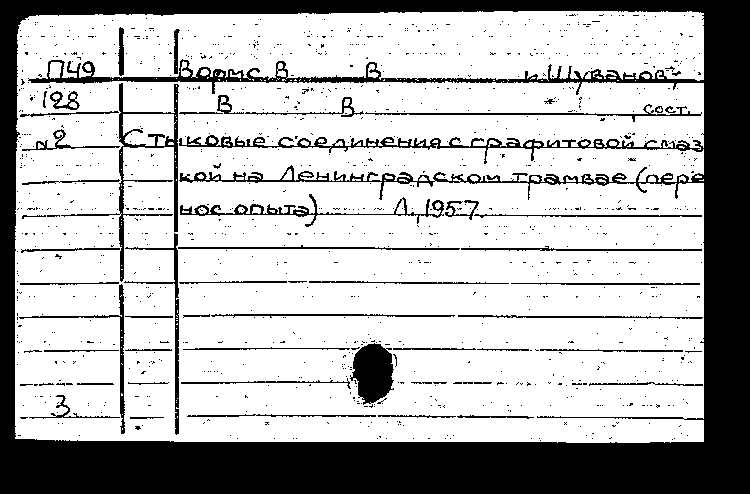 П49 Вормс, В. В. и Шуванов,
128 В. В. , сост.
№2 Стыковые соединения с графитовой смаз
кой на Ленинградском трамвае (пере
нос опыта) Л., 1957.
3.